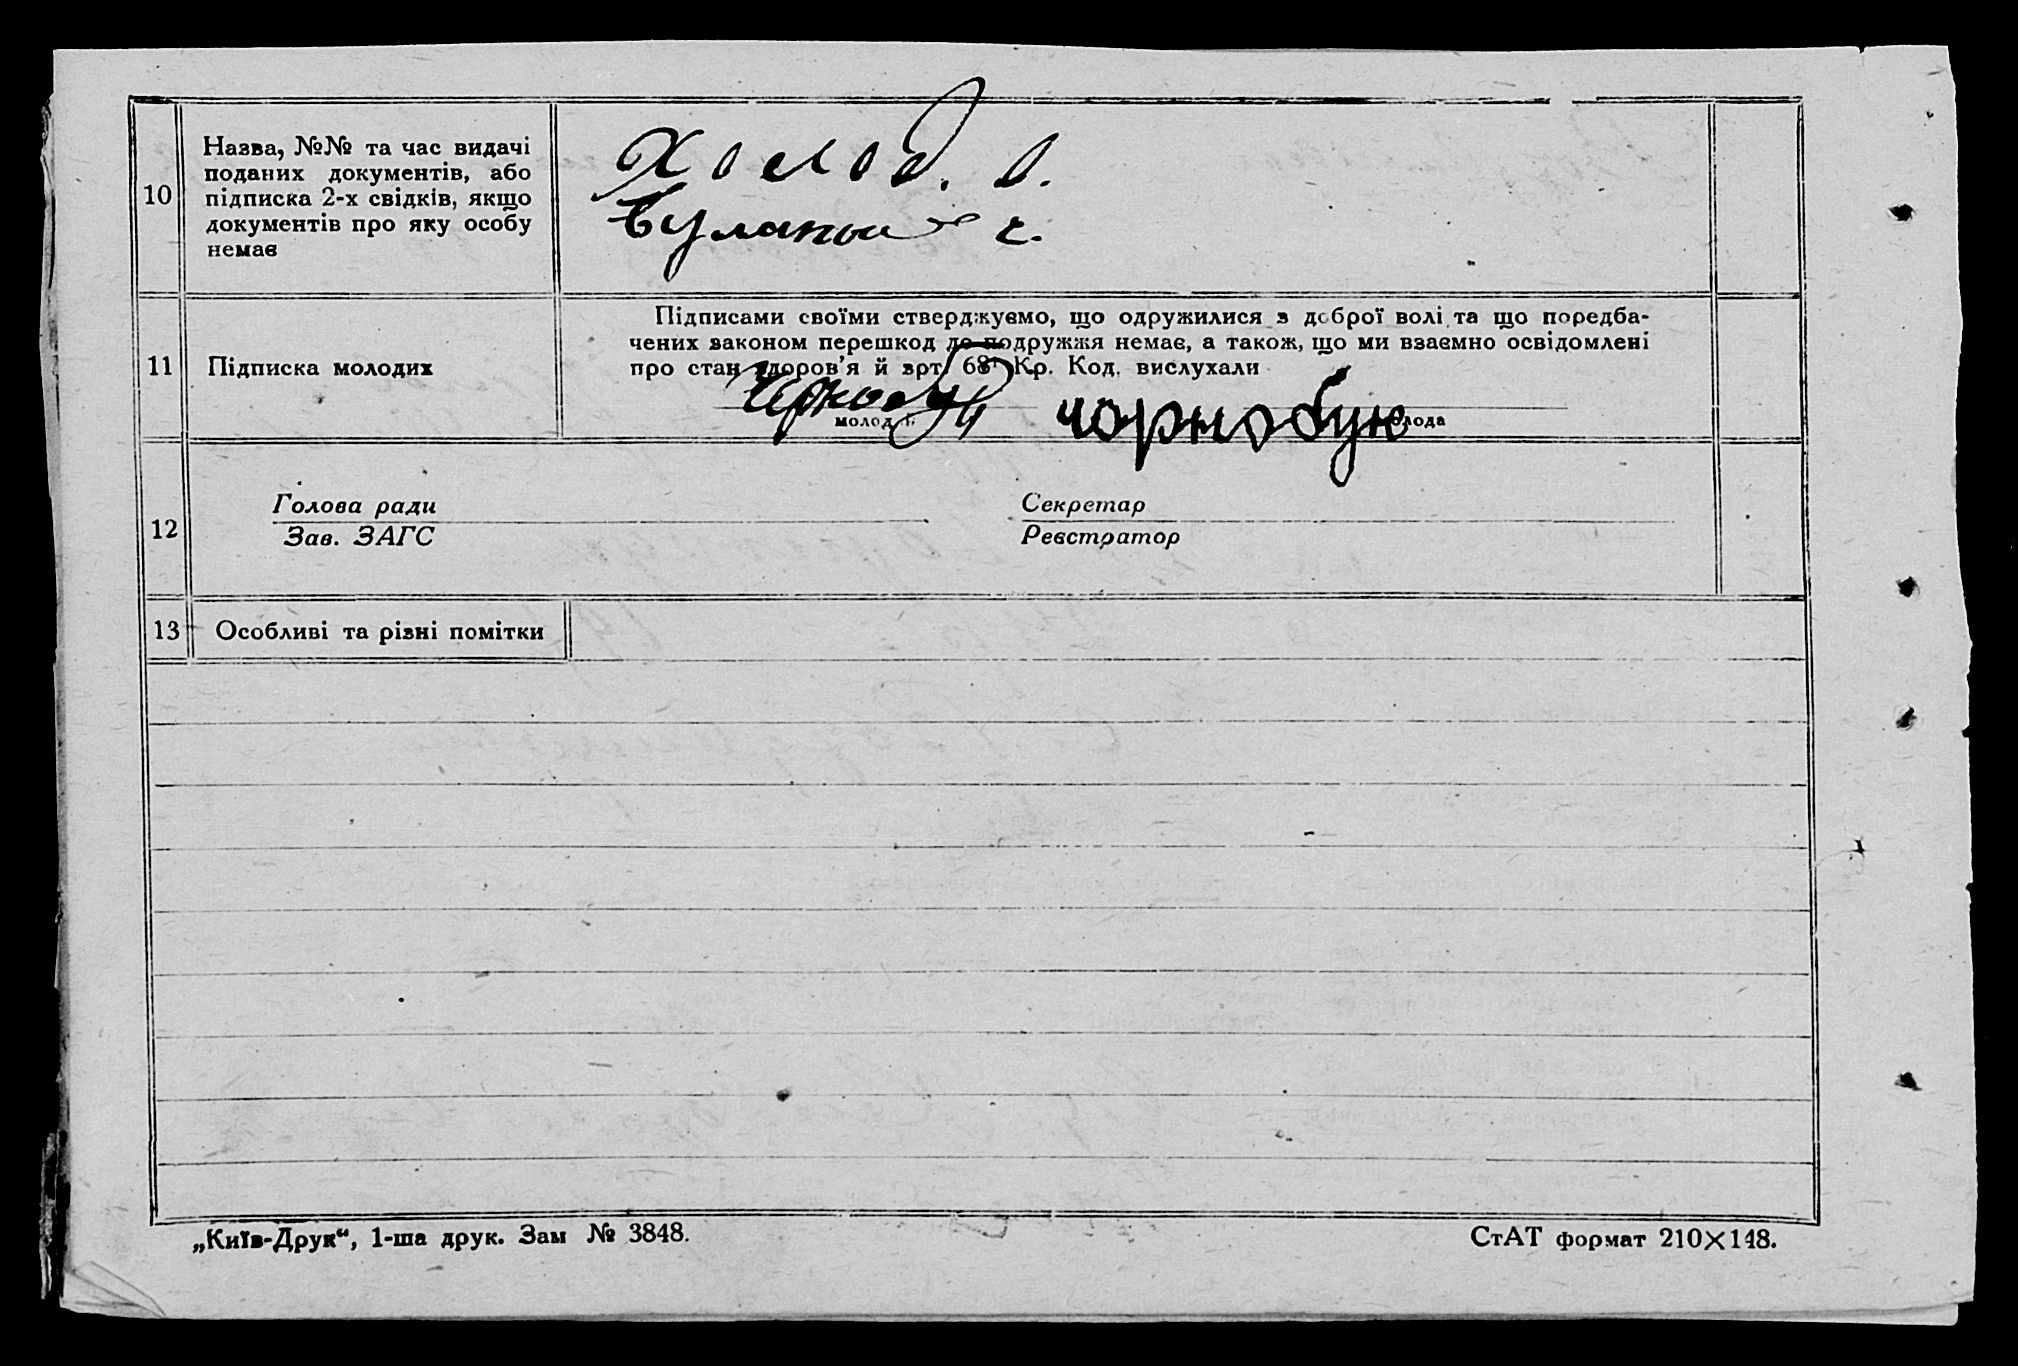 10
Назва, №№ та час видачі
поданих документів, або
підписка 2-х свідків, якщо
документів про яку особу
немає
Холод. О.
11
Підписка молодих
Підписами своїми стверджуємо, що одружилися з доброї волі та що поредба-
чених законом перешкод до подружжя немає, а також, що ми взаємно освідомлені
про стан здоров'я й арт. 68 Кр. Код. вислухали
чорнобук
молода
12
Голова ради
Зав. ЗАГС
Секретар
Реєстратор
13
Особливі та різні помітки
„Київ-Друк“, 1-ша друк. Зам № 3848.
СтАТ формат 210×148.